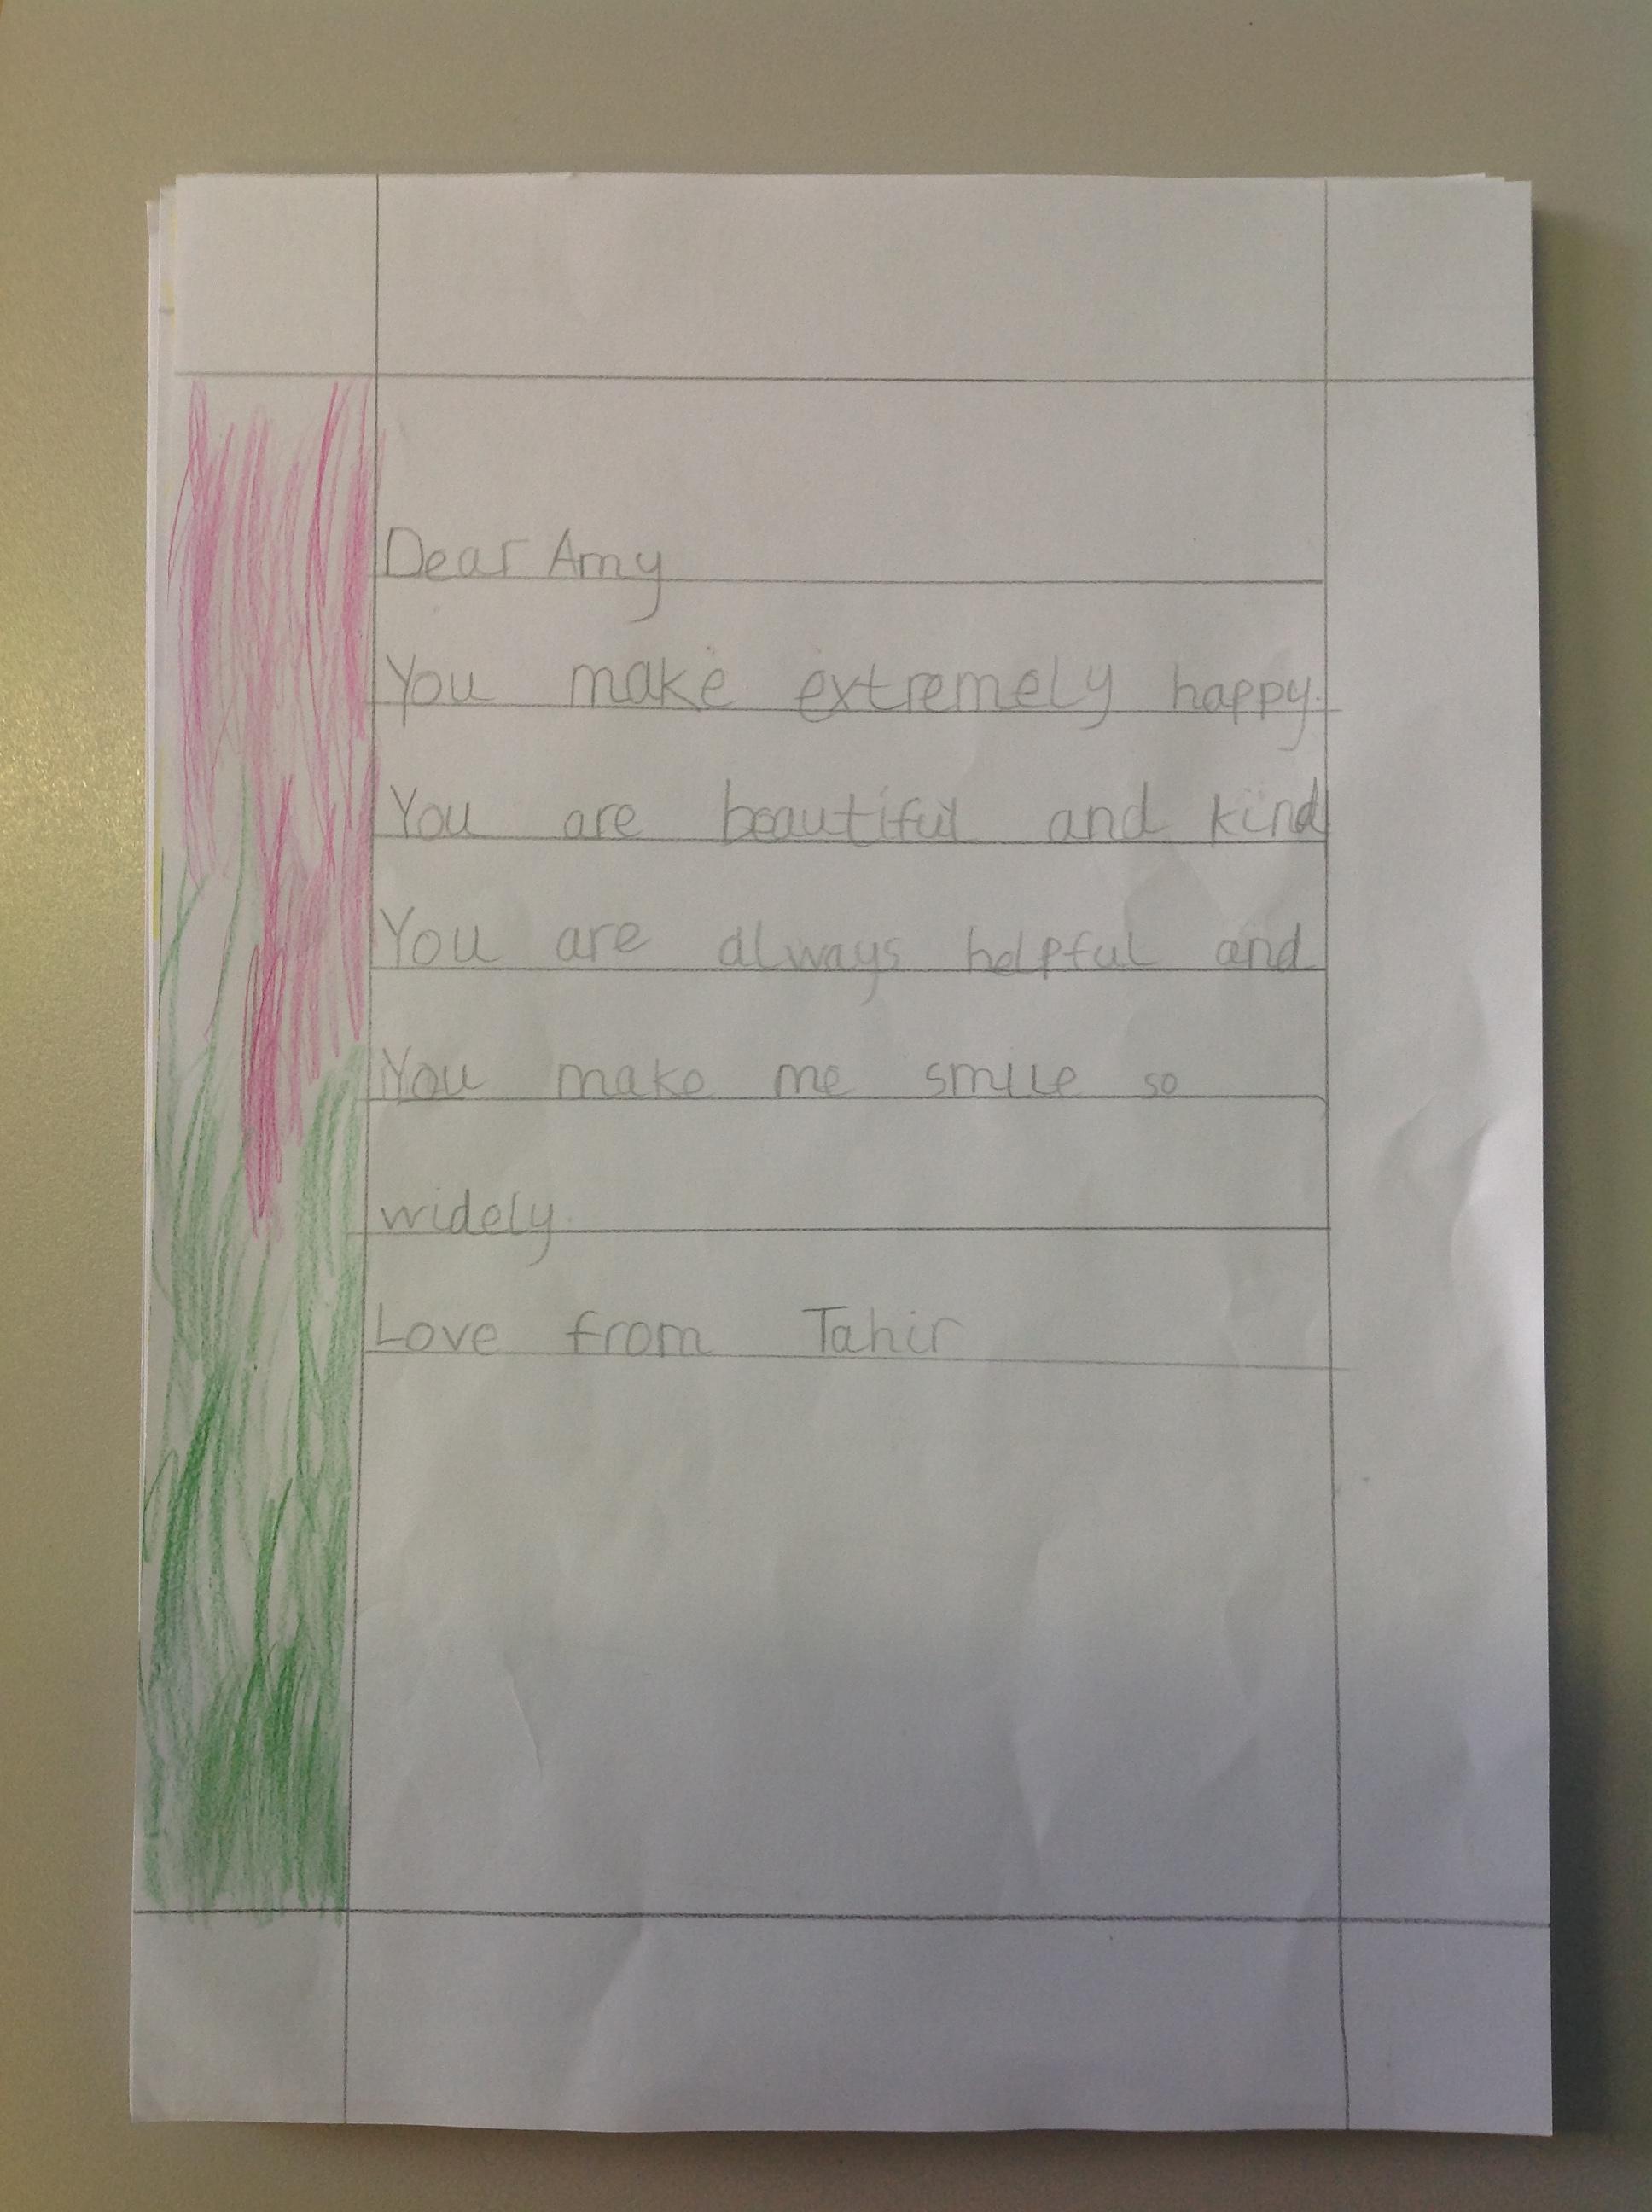 Dear Amy
You make extremely happy.
You are beautiful and kind
You are always helpful and
You make me smile so
widely.
Love from Tahir